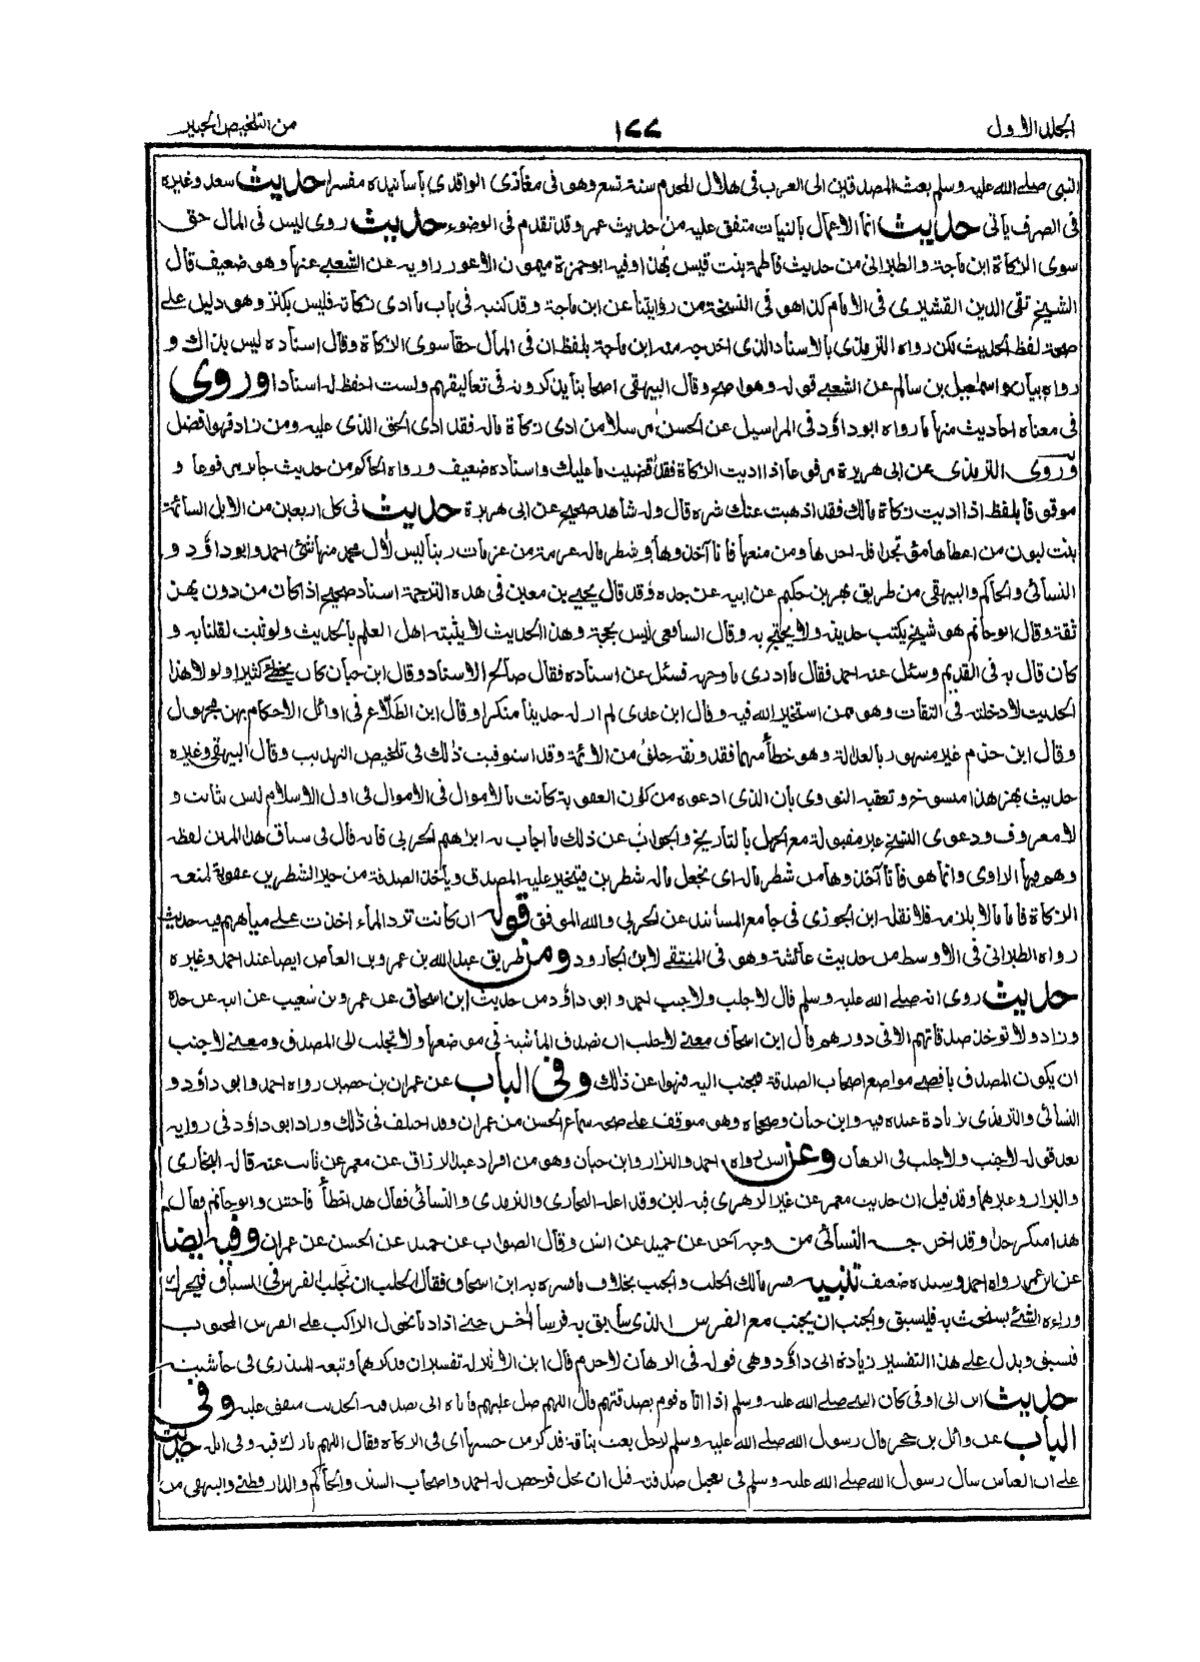 المجلد الاول
١٧٧
من التلخيص الحبير
النبي صلے الله عليه وسلم بعث المصدقين الى العرب فى هلال المحرم سنة تسع وهو فى مغازى الواقدى بأسانيده مفسرا حديث سعد وغيره
فى الصرف يأتى حديث انما الاعمال بالنيات متفق عليه من حديث عمر وقد تقدم فى الوضوء حديث روى ليس فى المال حق
سوى الزكاة ابن ماجة والطبرانى من حديث فاطمة بنت قيس بهذا وفيه ابو حمزة ميمون الاعور راويه عن الشعبے عنها وهو ضعيف قال
الشيخ تقى الدين القشيرى فى الامام كذا هو فى النسخة من روايتنا عن ابن ماجة وقد كتبه فى باب ما ادى زكاته فليس بكنز وهو دليل علے
صحة لفظ الحديث لكن رواه الترمذى بالاسناد الذى اخرجه منه ابن ماجة بلفظ ان فى المال حقا سوى الزكاة وقال اسناده ليس بذاك و
رواه بيان واسمعيل بن سالم عن الشعبے قوله وهو اصح وقال البيهقى اصحابنا يذكرونه فى تعاليقهم ولست احفظ له اسنادا وروى
فى معناه احاديث منها ما رواه ابو داؤد فى المراسيل عن الحسن مرسلا من ادى زكاة ماله فقد ادى الحق الذى عليه ومن زاد فهو افضل
وروى الترمذى عن ابى هريرة مرفوعا اذا اديت الزكاة فقد قضيت ما عليك واسناده ضعيف ورواه الحاكم من حديث جابر مرفوعا و
موقوفا بلفظ اذا اديت زكاة مالك فقد اذهبت عنك شره قال وله شاهد صحيح عن ابى هريرة حديث فى كل اربعين من الابل السائمة
بنت لبون من اعطاها مؤتجرا فله اجرها ومن منعها فانا آخذوها وشطر ماله عزمة من عزمات ربنا ليس لآل محمد منها شئ احمد وابو داؤد و
النسائى والحاكم والبيهقى من طريق بهز بن حكيم عن ابيه عن جده وقد قال يحيے بن معين فى هذه الترجمة اسناد صحيح اذا كان من دون بهز
ثقة وقال ابو حاتم هو شيخ يكتب حديثه ولا يحتج به وقال الشافعى ليس بحجة وهذا الحديث لا يثبته اهل العلم بالحديث ولو ثبت لقلنا به و
كان قال به فى القديم وسئل عنه احمد فقال ما ادرى ما وجهه فسئل عن اسناده فقال صالح الاسناد وقال ابن حبان كان يخطئ كثيرا ولولا هذا
الحديث لادخلته فى الثقات وهو ممن استخير الله فيه وقال ابن عدى لم ار له حديثا منكرا وقال ابن الطلاع فى اوائل الاحكام بهز مجهول
وقال ابن حزم غير مشهور بالعدالة وهو خطأ منهما فقد وثقه خلق من الائمة وقد استوفيت ذلك فى تلخيص التهذيب وقال البيهقى وغيره
حديث بهز هذا منسوخ وتعقبه النووى بأن الذى ادعوه من كون العقوبة كانت بالاموال فى الاموال فى اول الاسلام ليس بثابت و
لا معروف ودعوى النسخ غير مقبولة مع الجهل بالتاريخ والجواب عن ذلك ما اجاب به ابراهيم الحربى فانه قال فى سياق هذا المتن لفظة
وهم فيها الراوى وانما هو فانا آخذوها من شطر ماله اى نجعل ماله شطرين فيتخير عليه المصدق ويأخذ الصدقة من خير الشطرين عقوبة لمنعه
الزكاة فاما ما لا يلزمه فلا نقله ابن الجوزى فى جامع المسانيد عن الحربى والله الموفق قوله ان كانت ترد الماء اخذت علے مياههم فيه حديث
رواه الطبرانى فى الاوسط من حديث عائشة وهو فى المنتقے لابن الجارود ومن طريق عبد الله بن عمرو بن العاص ايضا عند احمد وغيره
حديث روى انه صلے الله عليه وسلم قال لا جلب ولا جنب احمد وابو داؤد من حديث ابن اسحاق عن عمرو بن شعيب عن ابيه عن جده
وزاد ولا تؤخذ صدقاتهم الا فى دورهم قال ابن اسحاق معنے لا جلب ان تصدق الماشية فى موضعها ولا تجلب الى المصدق ومعنے لا جنب
ان يكون المصدق بأقصے مواضع اصحاب الصدقة فتجنب اليه فنهوا عن ذلك وفى الباب عن عمران بن حصين رواه احمد وابو داؤد و
النسائى والترمذى بزيادة عنده فيه وابن حبان وصححاه وهو متوقف علے صحة سماع الحسن من عمران وقد اختلف فى ذلك وزاد ابو داؤد فى رواية
بعد قوله لا جنب ولا جلب فى الرهان وعن انس رواه احمد والبزار وابن حبان وهو من افراد عبد الرزاق عن معمر عن ثابت عنه قاله البخارى
والبزار وغيرهما وقد قيل ان حديث معمر عن غير الزهرى فيه لين وقد اعله البخارى والترمذى والنسائى فقال هذا خطأ فاحش وابو حاتم فقال
هذا منكر جدا وقد اخرجه النسائى من وجه آخر عن حميد عن انس وقال الصواب عن حميد عن الحسن عن عمران وفيه ايضا
عن ابن عمر رواه احمد وسنده ضعيف تنبيه فسر مالك الجلب والجنب بخلاف ما فسره به ابن اسحاق فقال الجلب ان تجلب الفرس فى السباق فيحرك
وراءه الشئ يستحث به فليسبق والجنب ان يجنب مع الفرس الذى سابق به فرسا آخر حتے اذا دنا تحول الراكب علے الفرس المجنوب
فسبق ويدل علے هذا التفسير زيادة ابى داؤد وهى قوله فى الرهان لا جرم قال ابن الاثير له تفسيران فذكرهما وتبعه المنذرى فى حاشيته
حديث ابن ابى اوفى كان النبے صلے الله عليه وسلم اذا اتاه قوم بصدقتهم قال اللهم صل عليهم فاتاه ابى بصدقته الحديث متفق عليه وفى
الباب عن وائل بن حجر قال رسول الله صلے الله عليه وسلم لرجل بعث بناقة فذكر من حسنها اى فى الزكاة فقال اللهم بارك فيه وفى ابله حديث
علے ان العباس سأل رسول الله صلے الله عليه وسلم فى تعجيل صدقته قبل ان تحل فرخص له احمد واصحاب السنن والحاكم والدارقطنے والبيهقى من